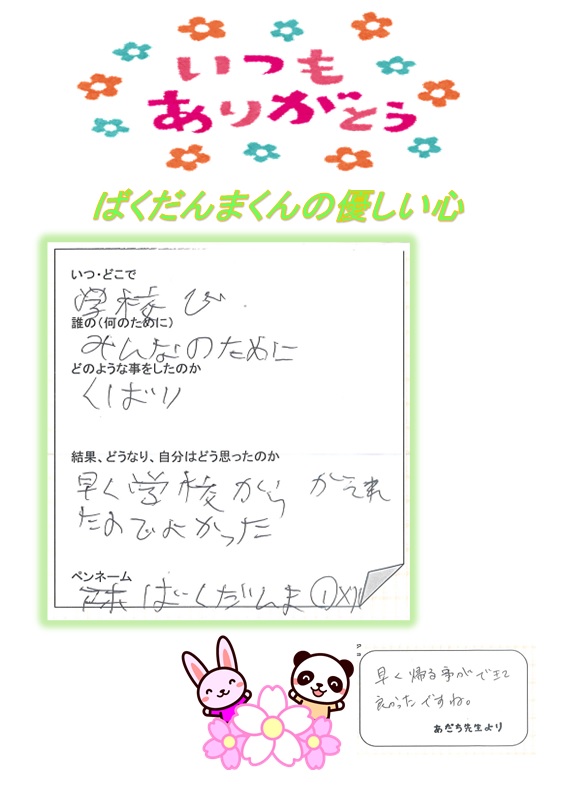 いつも
ありがとう
ばくだんまくんの優しい心
いつ・どこで
学校で
誰の(何のために)
みんなのために
どのような事をしたのか
くばり
結果、どうなり、自分はどう思ったのか
早く学校から がえれ
たのでよかった
ペンネーム
ばくだんま
早く帰る事ができて
良かったですね。
あだち先生より